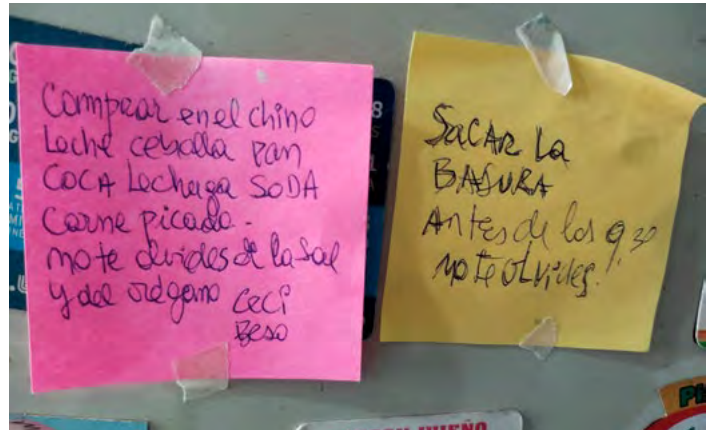 Comprar en el chino
Leche cebolla pan
COCA Lechuga SODA
Carne picada -
no te olvides de la sal
y del orégano Ceci
Beso
SACAR La
BASURA
Antes de las 9 30
no te olvides!